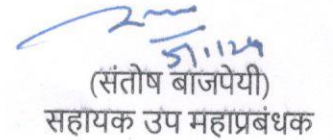 5/1/24
(संतोष बाजपेयी)
सहायक उप महाप्रबंधक